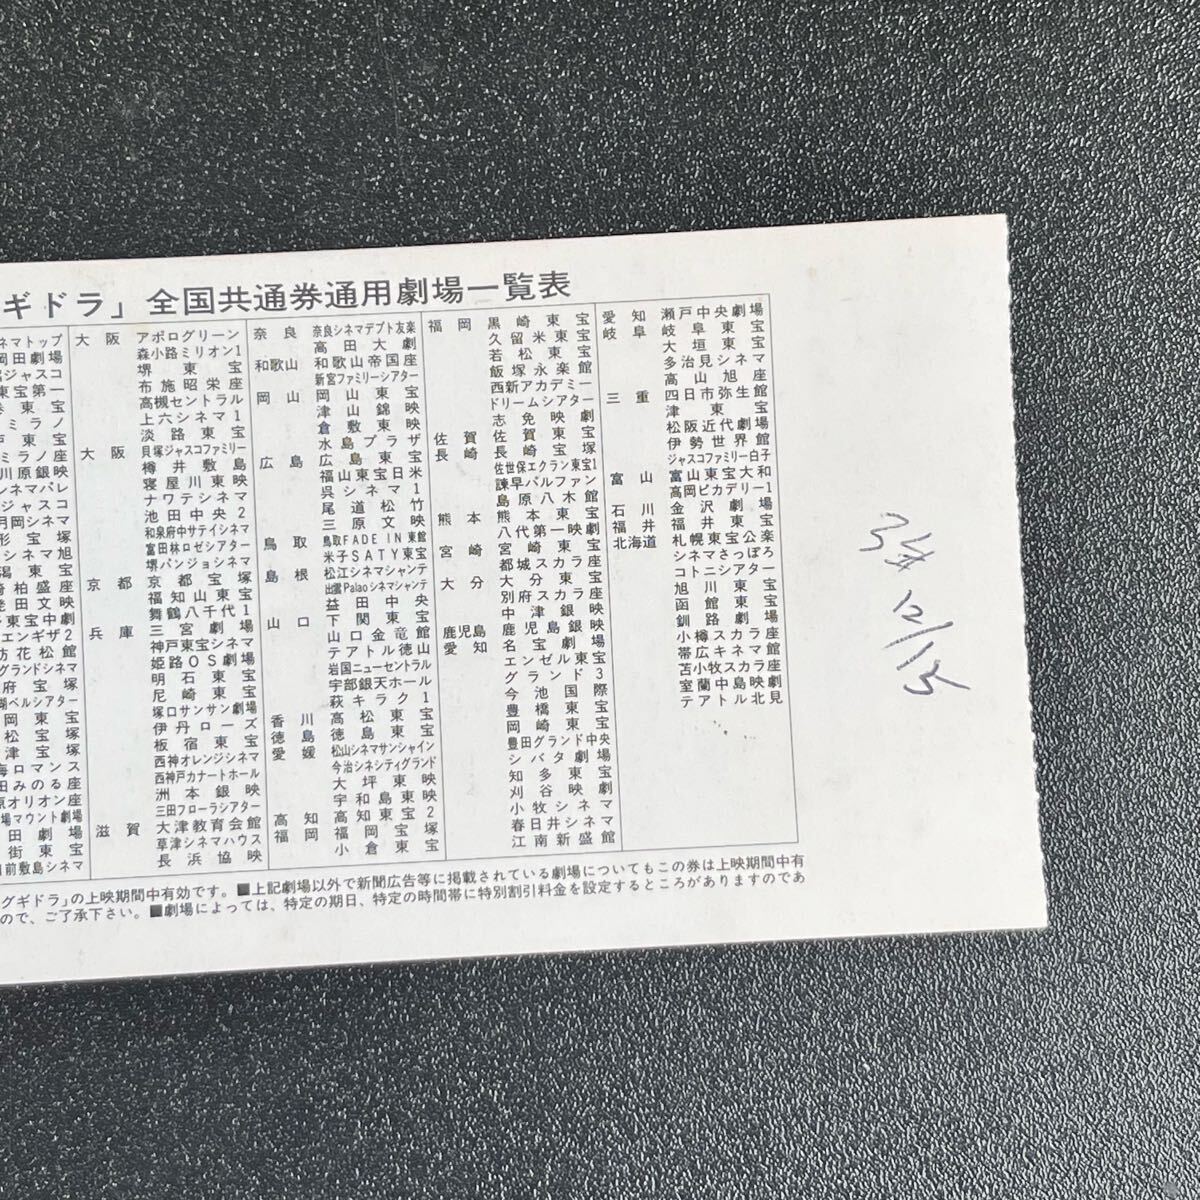 ギドラ」全国共通券通用劇場一覧表
ネマトップ
岡田劇場
ジャスコ
東宝第一
東宝
ミラノ
東宝
ミラノ座
川原銀映
シネマパレ
ジャスコ
月岡シネマ
宝塚
シネマ旭
東宝
柏盛座
老田文映
東宝中劇
エンギザ2
坊花松館
グランドシネマ
府宝塚
湖ベルシアター
岡東宝
松宝塚
津宝塚
海ロマンス
田みのる座
原オリオン座
場マウント劇場
田劇場
街東宝
前敷島シネマ
大阪 アポログリーン
森小路ミリオン1
堺東宝
布施昭栄座
高槻セントラル
上六シネマ1
淡路東宝
大阪 貝塚ジャスコファミリー
樽井敷島
寝屋川東映
ナワテシネマ
池田中央2
和泉府中サテイシネマ
富田林ロゼシアター
堺パンジョシネマ
京都 京都宝塚
福知山東宝
舞鶴八千代1
兵庫 三宮劇場
神戸東宝シネマ
姫路OS劇場
明石東宝
尼崎東宝
塚口サンサン劇場
伊丹ローズ
板宿東宝
西神オレンジシネマ
西神戸カナートホール
洲本銀映
三田フローラシアター
滋賀 大津教育会館
草津シネマハウス
長浜協映
奈良 奈良シネマデプト友楽
高田大劇
和歌山 和歌山帝国座
新宮ファミリーシアター
岡山 岡山東宝
津山錦映
倉敷東映
水島プラザ
広島 広島東宝
福山東宝日米
呉シネマ1
尾道松竹
三原文映
鳥取 鳥取FADE IN東館
米子SATY東宝
島根 松江シネマシャンテ
出雲Palaoシネマシャンテ
益田中央
山口 下関東宝
山口金竜館
テアトル徳山
岩国ニューセントラル
宇部銀天ホール
萩キラク1
香川 高松東宝
徳島 徳島東宝
愛媛 松山シネマサンシャイン
今治シネシティグランド
大坪東映
宇和島東映
高知 高知東宝2
福岡 福岡宝塚
小倉東宝
福岡 黒崎東宝
久留米東宝
若松東宝
飯塚永楽館
西新アカデミー
ドリームシアター
志免映劇
佐賀 佐賀東宝
長崎 長崎宝塚
佐世保エクラン東宝1
諫早パルファン
島原八木館
熊本 熊本東宝
八代第一映劇
宮崎 宮崎東宝
都城スカラ座
大分 大分東宝
別府スカラ座
中津銀映
鹿児島 鹿児島銀映
愛知 名宝劇場
エンゼル東宝
グランド3
今池国際
豊橋東宝
岡崎東宝
豊田グランド中央
シバタ劇場
知多東宝
刈谷映劇
小牧シネマ
春日井シネマ
江南新盛館
愛知 瀬戸中央劇場
岐阜 岐阜東宝
大垣東宝
多治見シネマ
高山旭座
三重 四日市弥生館
津東宝
松阪近代劇場
伊勢世界館
ジャスコファミリー白子
富山 富山東宝大和
高岡ピカデリー1
石川 金沢劇場
福井 福井東宝
北海道 札幌東宝公楽
シネマさっぽろ
コトニシアター
旭川東宝
函館東宝
釧路劇場
小樽スカラ座
帯広キネマ館
苫小牧スカラ座
室蘭中島映劇
テアトル北見
グギドラ」の上映期間中有効です。■上記劇場以外で新聞広告等に掲載されている劇場についてもこの券は上映期間中有
ので、ご了承下さい。■劇場によっては、特定の期日、特定の時間帯に特別割引料金を設定するところがありますのであ